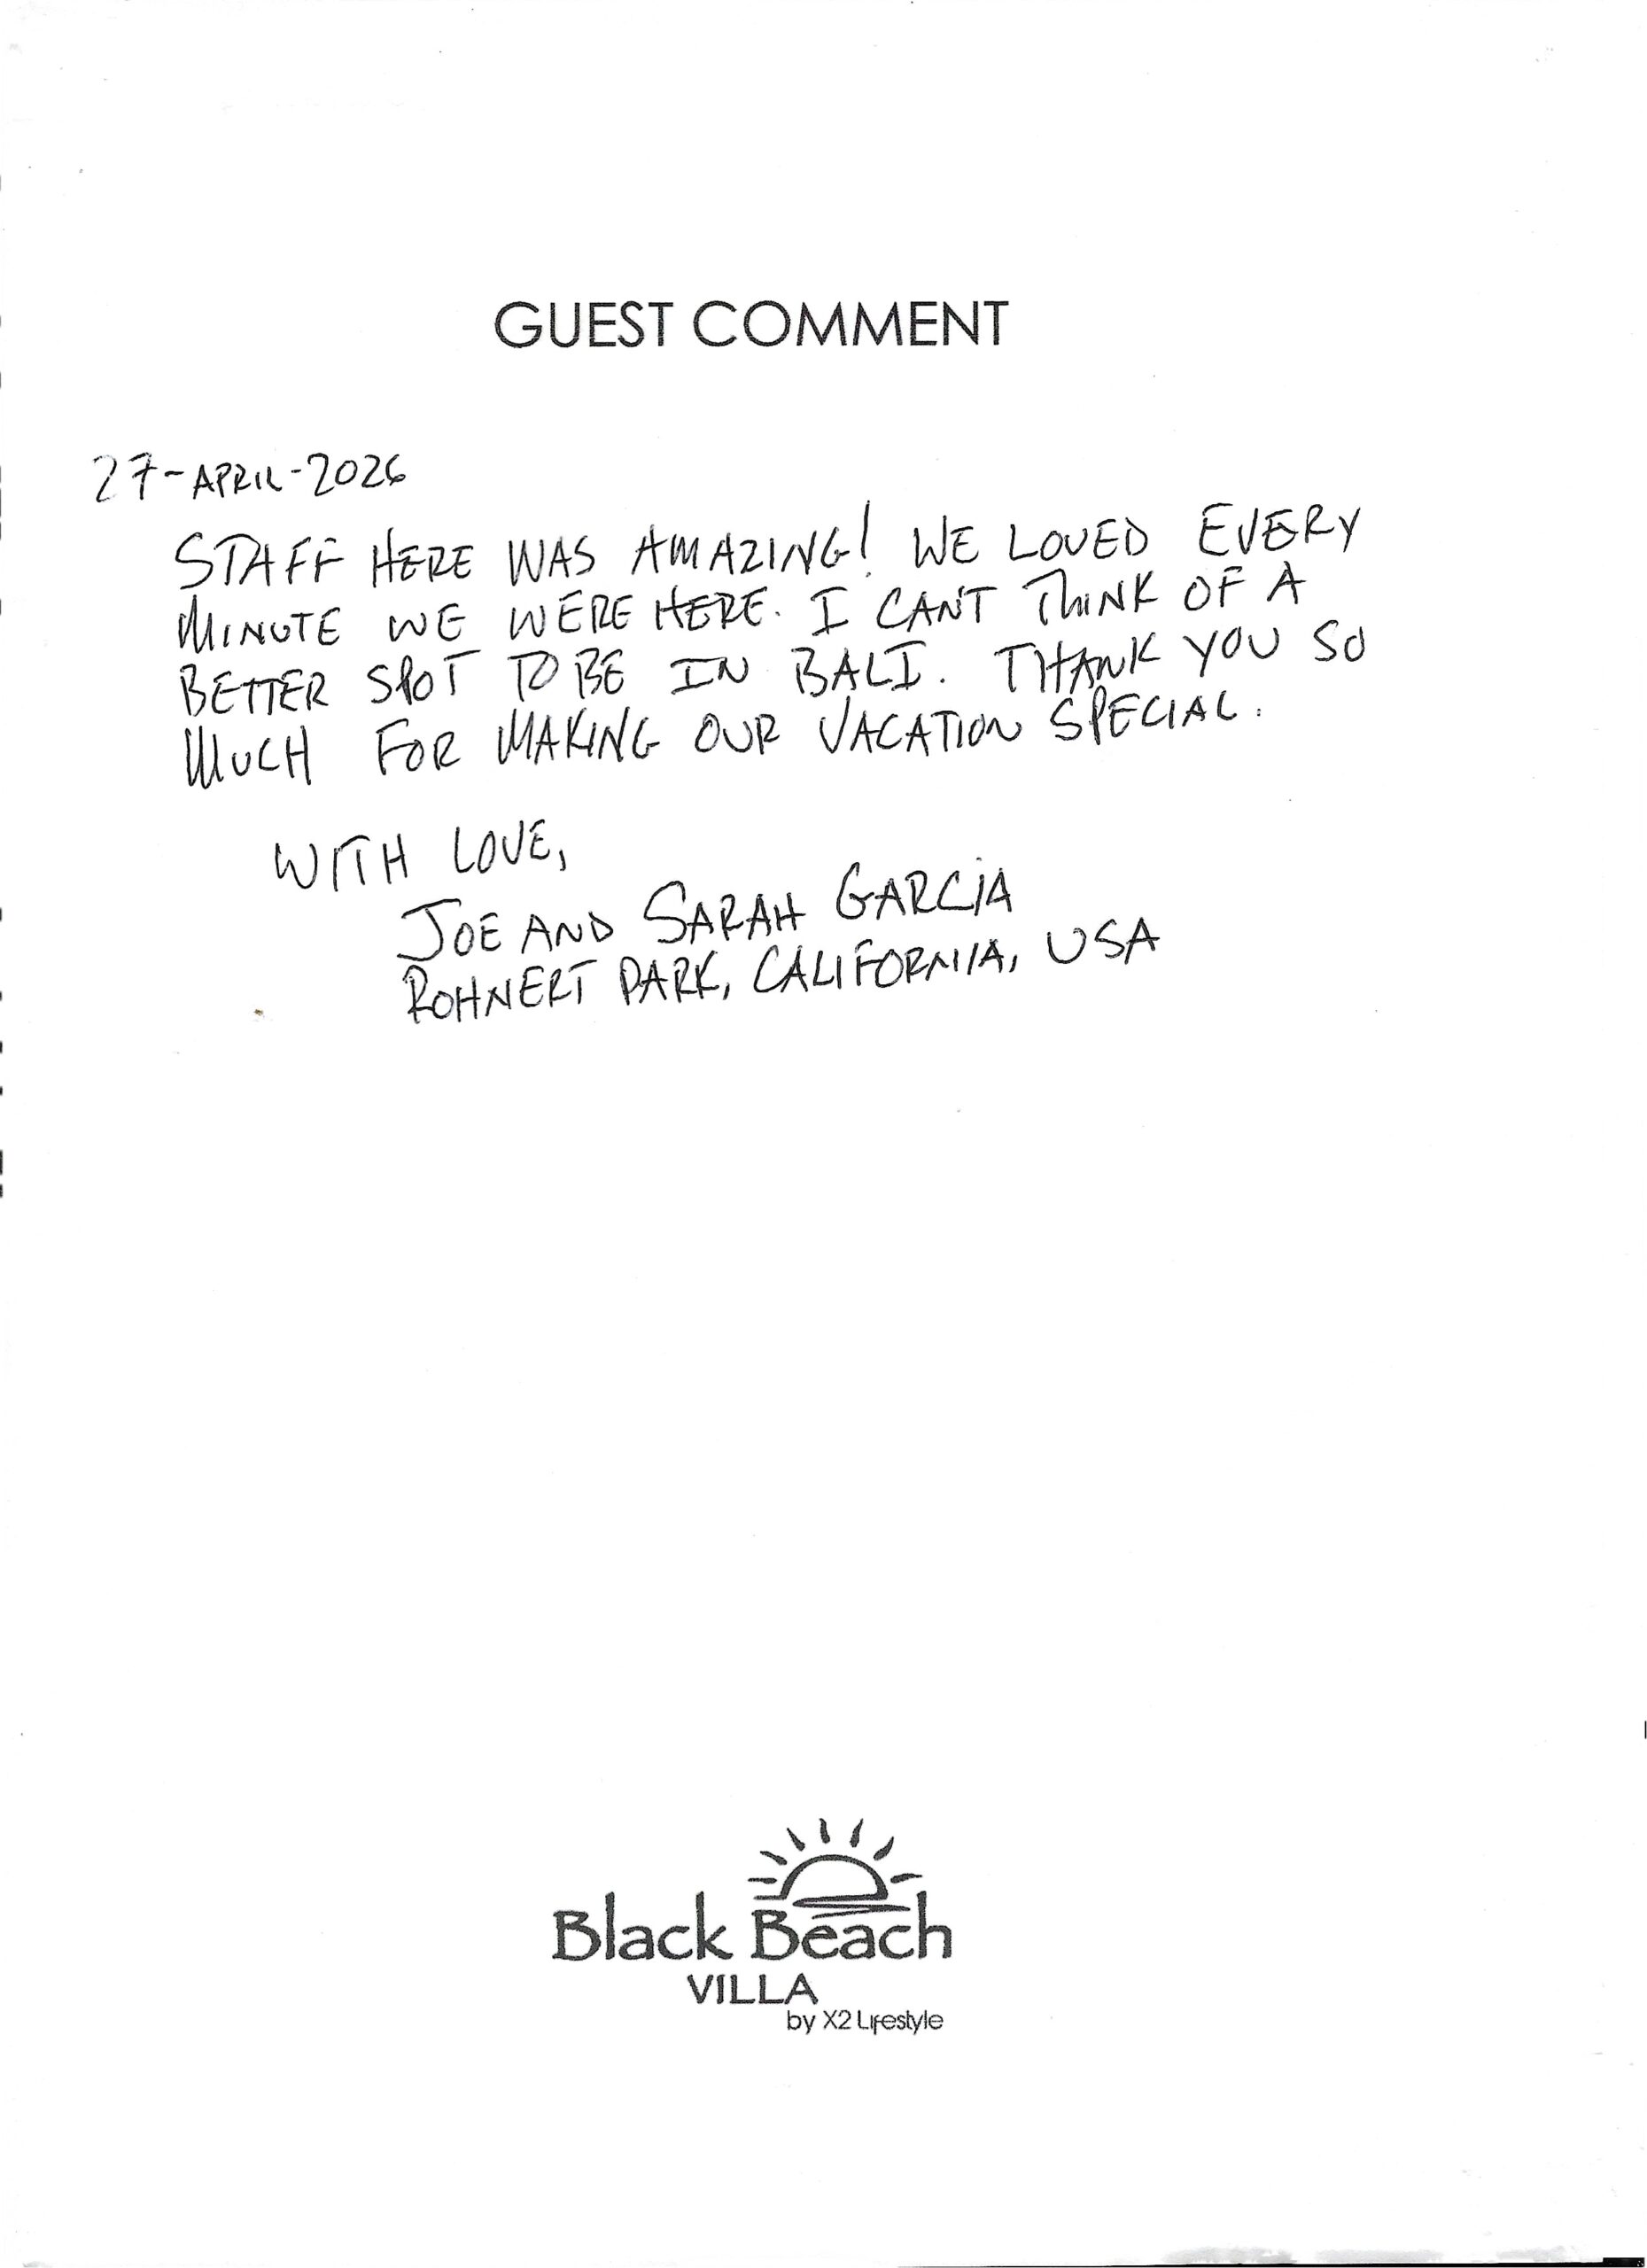 GUEST COMMENT
27-APRIL-2026
STAFF HERE WAS AMAZING! WE LOVED EVERY
MINUTE WE WERE HERE. I CAN'T THINK OF A
BETTER SPOT TO BE IN BALI. THANK YOU SO
MUCH FOR MAKING OUR VACATION SPECIAL.
WITH LOVE,
JOE AND SARAH GARCIA
ROHNERT PARK, CALIFORNIA, USA
Black Beach
VILLA
by X2 Lifestyle